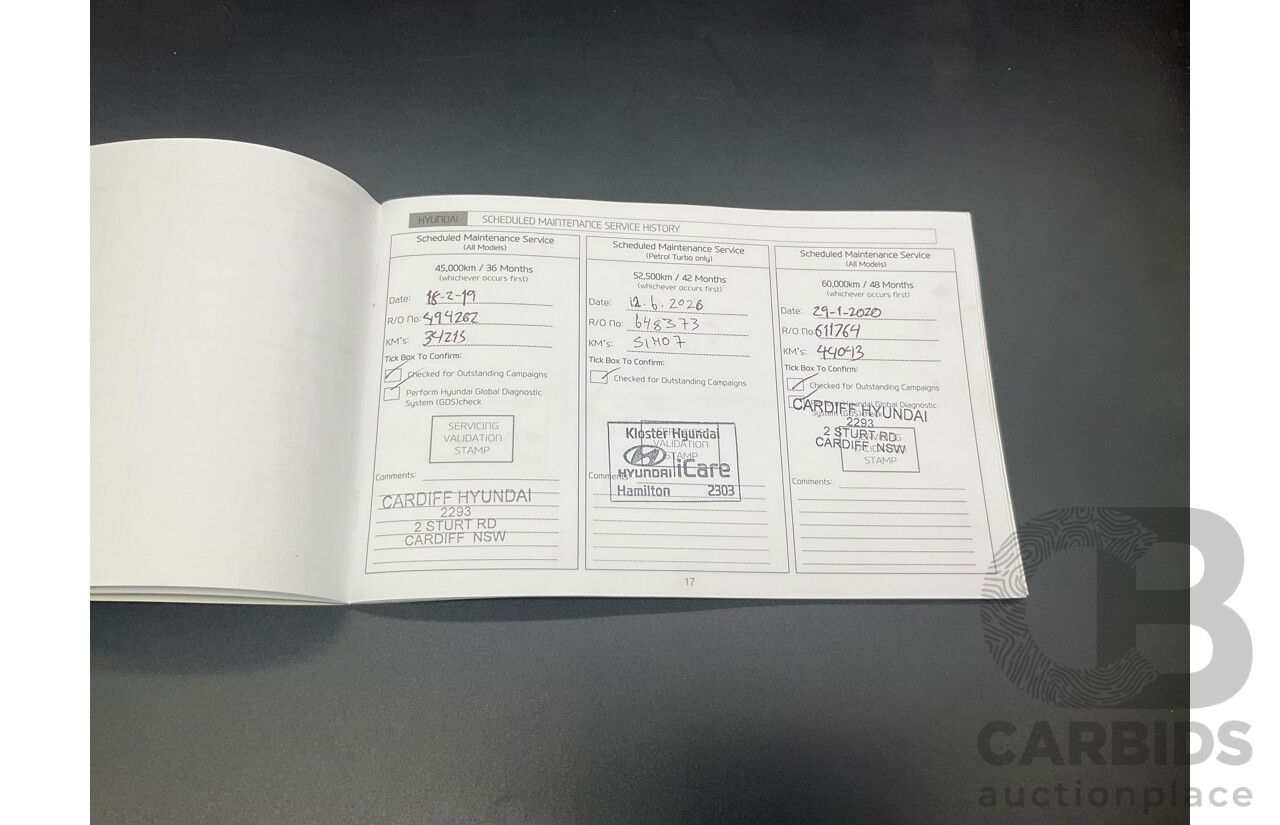 HYUNDAI SCHEDULED MAINTENANCE SERVICE HISTORY
Scheduled Maintenance Service
(All Models)
45,000km / 36 Months
(whichever occurs first)
Date: 18-2-19
R/O No: 494262
KM's: 34215
Tick Box To Confirm:
Checked for Outstanding Campaigns
Perform Hyundai Global Diagnostic
System (GDS)check
SERVICING
VALIDATION
STAMP
Comments:
CARDIFF HYUNDAI
2293
2 STURT RD
CARDIFF NSW
Scheduled Maintenance Service
(Petrol Turbo only)
52,500km / 42 Months
(whichever occurs first)
Date: 12.6.2020
R/O No: 648373
KM's: 51407
Tick Box To Confirm:
Checked for Outstanding Campaigns
Kloster Hyundai
VALIDATION
STAMP
HYUNDAI iCare
Comments:
Hamilton 2303
Scheduled Maintenance Service
(All Models)
60,000km / 48 Months
(whichever occurs first)
Date: 29-1-2020
R/O No: 611764
KM's: 44043
Tick Box To Confirm:
Checked for Outstanding Campaigns
Hyundai Global Diagnostic
System (GDS)check
CARDIFF HYUNDAI
2293
2 STURT RD
CARDIFF NSW
STAMP
Comments:
17
CB
CARBIDS
auctionplace